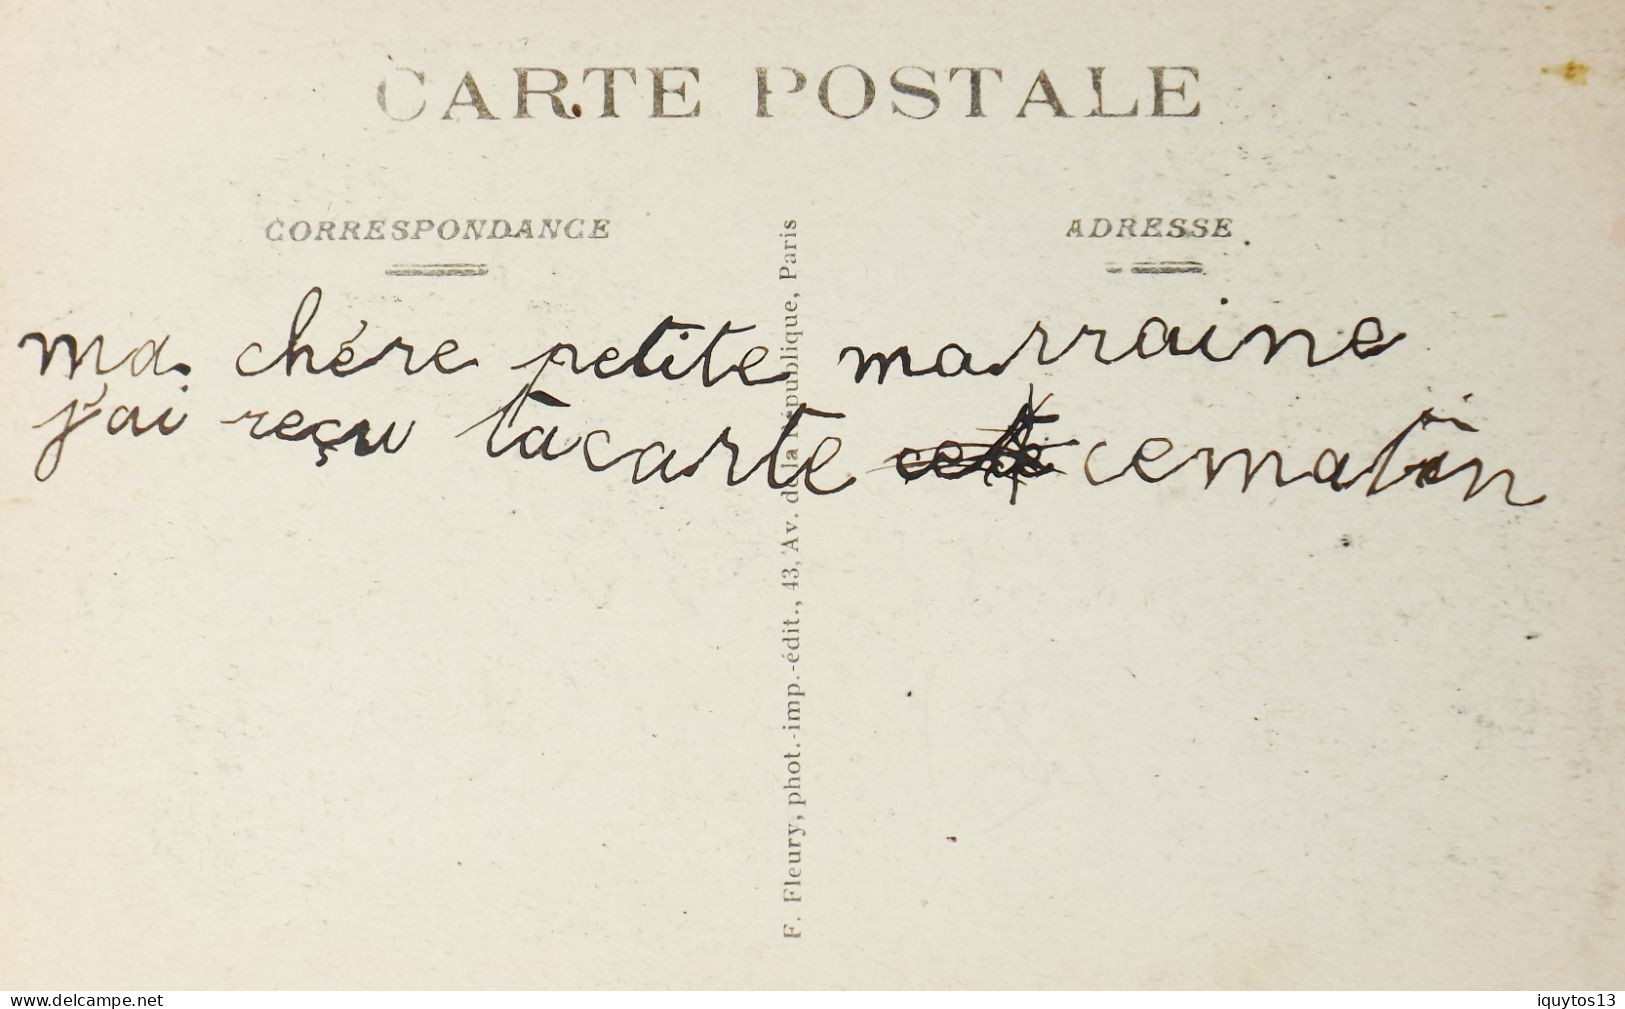 CARTE POSTALE
CORRESPONDANCE
ADRESSE
ma chére petite marraine
j'ai reçu tacarte cematin
F. Fleury, phot.-imp.-édit., 43, Av. de la République, Paris
www.delcampe.net
iquytos13